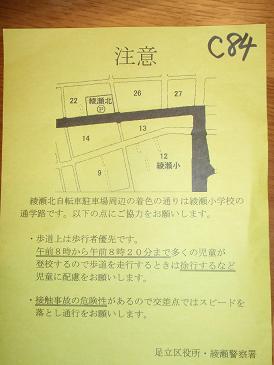 C84
注意
22
綾瀬北
26
27
14
13
12
綾瀬小
9
綾瀬北自転車駐車場周辺の着色の通りは綾瀬小学校の
通学路です。以下の点にご協力をお願いします。
・歩道上は歩行者優先です。
午前8時から午前8時20分まで多くの児童が
登校するので歩道を走行するときは徐行するなど
児童に配慮をお願いします。
・接触事故の危険性があるので交差点ではスピードを
落とし通行をお願いします。
足立区役所・綾瀬警察署